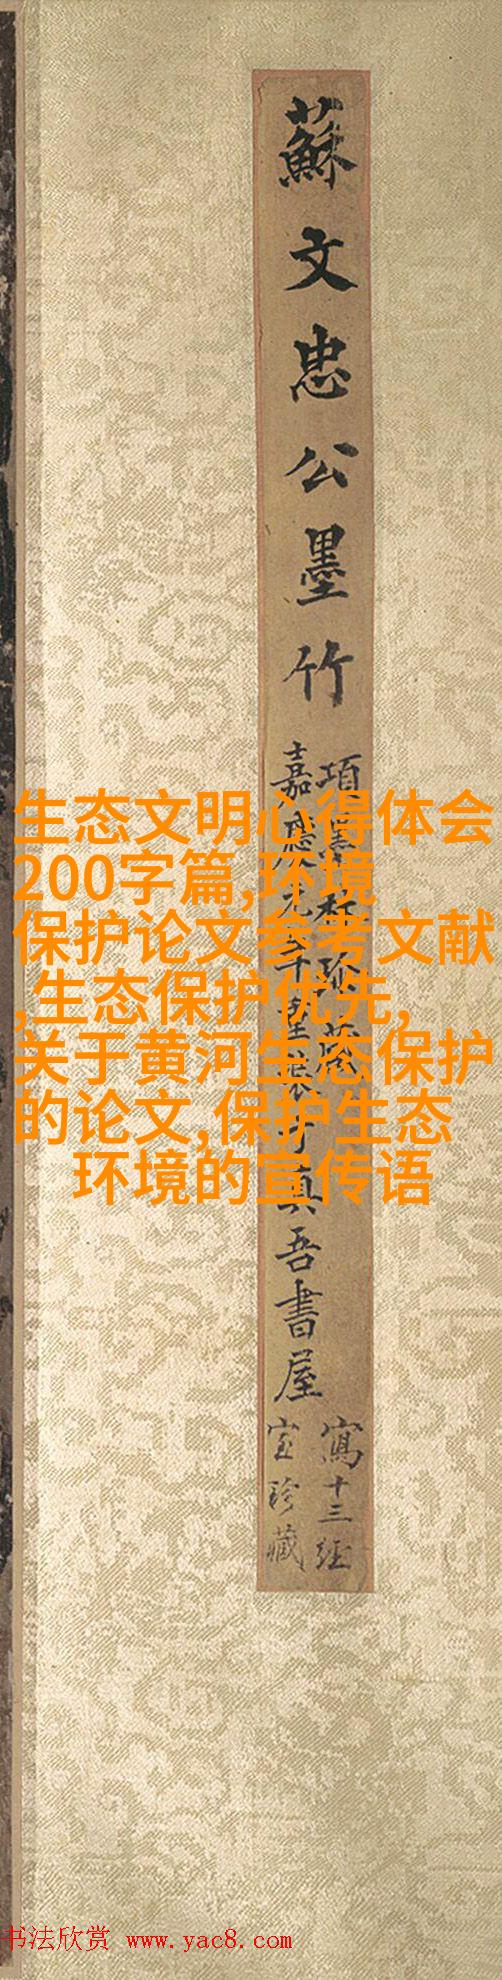 蘇文忠公墨竹
項墨林珍藏
嘉慶元年重裝于真吾書屋
寫十三經
室珍藏
生态文明心得体会
200字篇,环境
保护论文参考文献
,生态保护优先,
关于黄河生态保护
的论文,保护生态
环境的宣传语
书法欣赏 www.yac8.com